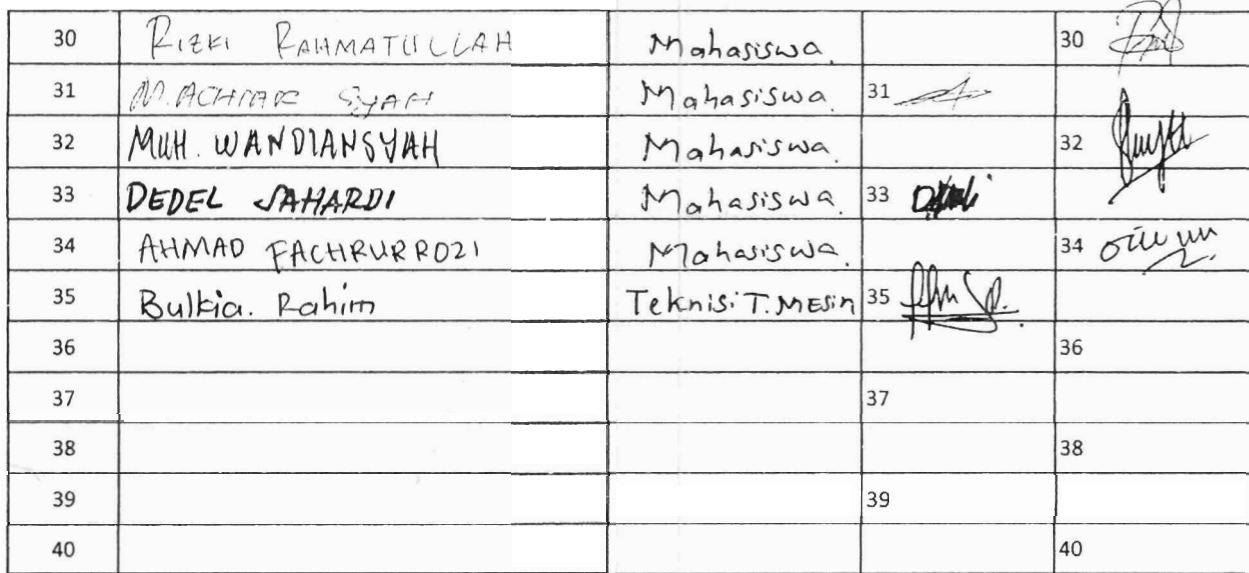 30 RIZKI RAHMATULLAH Mahasiswa. 30
31 M. ACHMAR SYAH Mahasiswa. 31
32 MUH. WANDIANSYAH Mahasiswa. 32
33 DEDEL SAHARDI Mahasiswa. 33
34 AHMAD FACHRURROZI Mahasiswa. 34
35 Bulkia. Rahim Teknisi T. Mesin 35
36 36
37 37
38 38
39 39
40 40